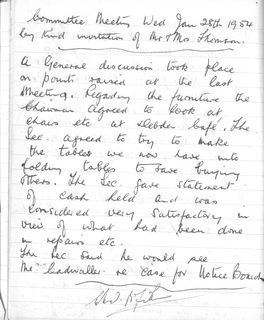 Committee Meeting Wed Jan 28th 1954
by kind invitation of Mr & Mrs Thomson.
A General discussion took place
on points raised at the last
Meeting. Regarding the furniture the
Chairman agreed to look at
chairs etc at Cafe. The
Sec. agreed to try to make
the tables we now have into
folding tables to save buying
others. The Sec gave statement
of cash held and was
considered very satisfactory in
view of what had been done
in repairs etc.
The Sec said he would see
Mr Cadwallader re case for Notice Board